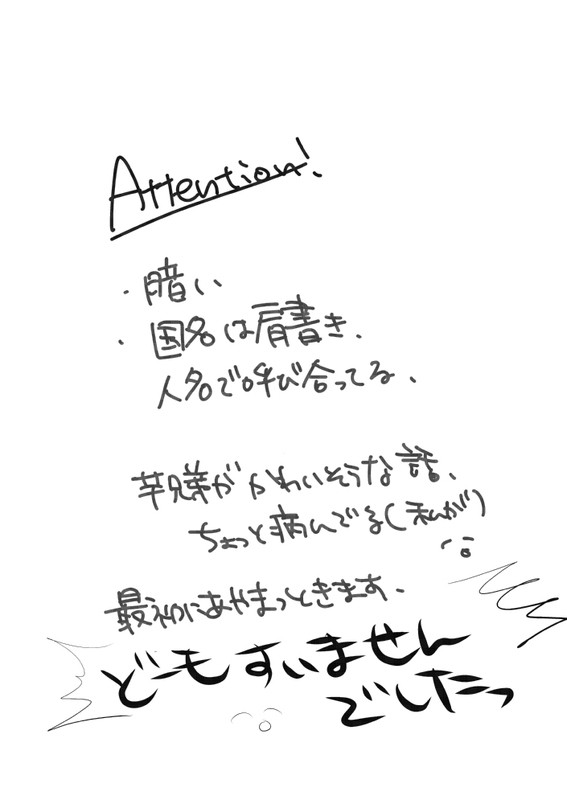 Attention!
・暗い
・国名は肩書き、
人名で呼び合ってる、
芋兄弟がかわいそうな話、
ちょっと病んでる(私が)
最初にあやまっときます、
どーもすいません
でしたっ